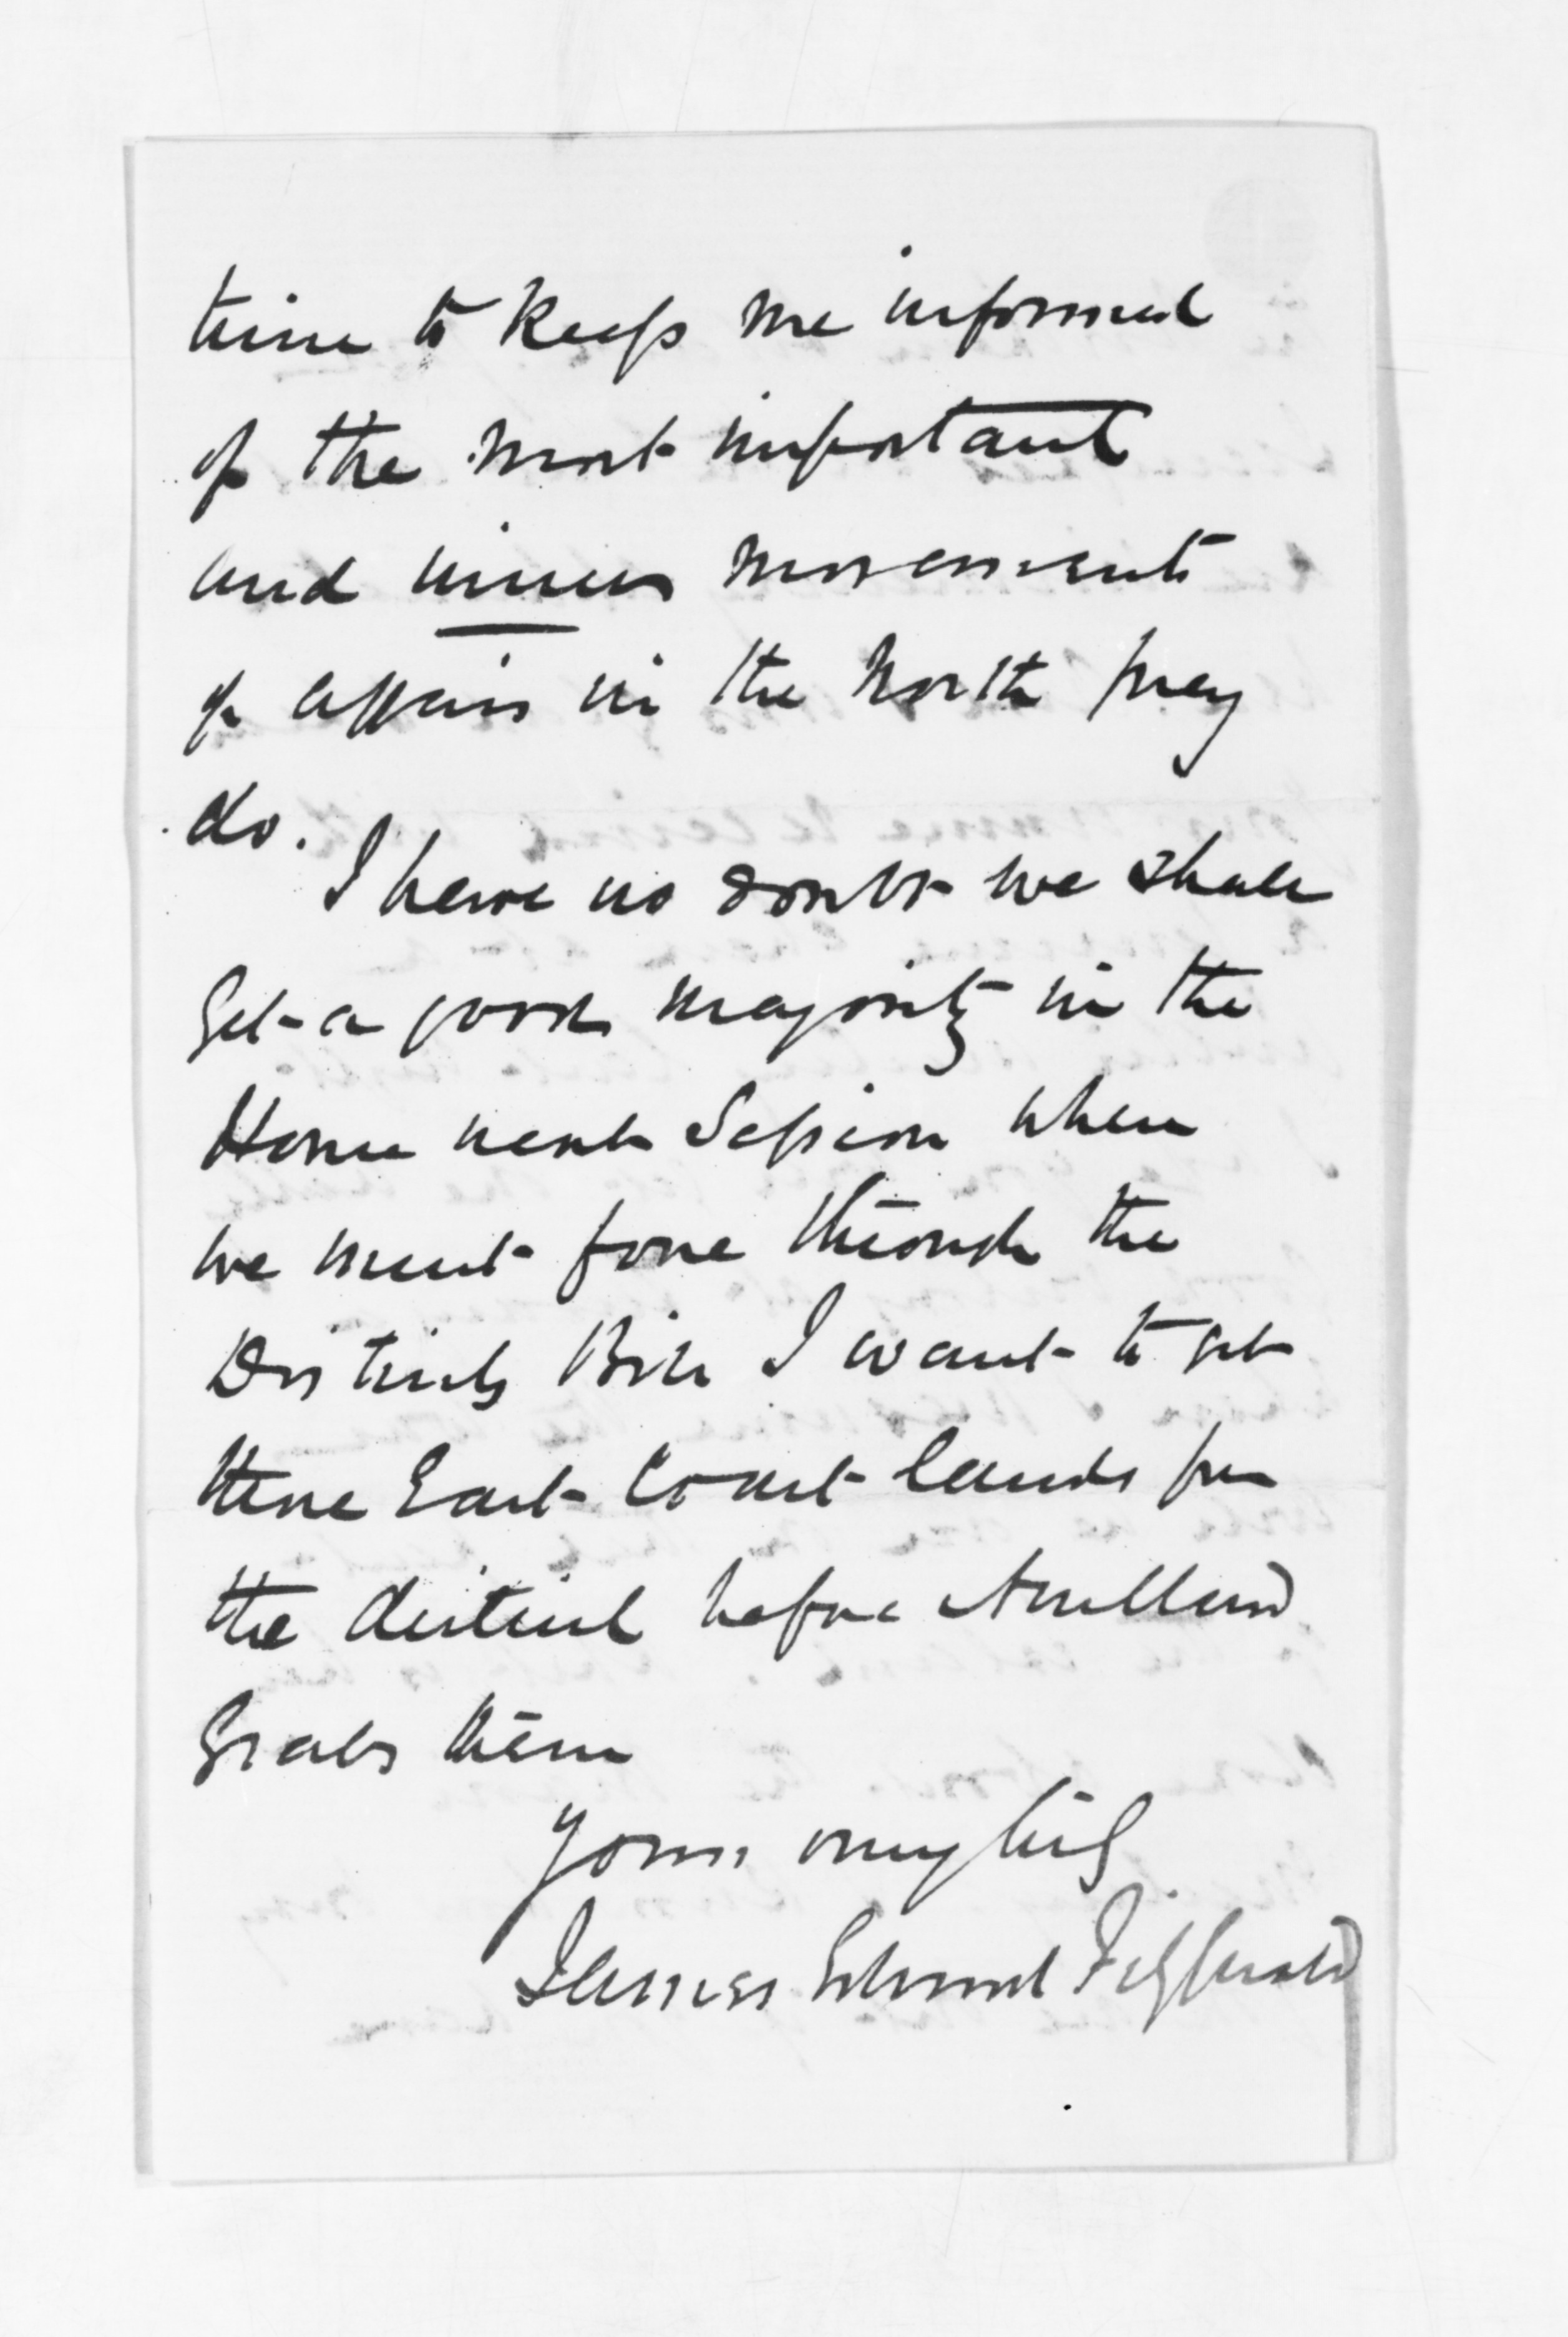 time to keep me informed
of the most important
and minor movements
of affairs in the North pray
do.
I have no doubt we shall
get a good majority in the
House next Session when
we must force through the
Districts Bill I want to get
these East Coast lands for
the district before Auckland
Grabs them
Yours very truly
James Edward FitzGerald